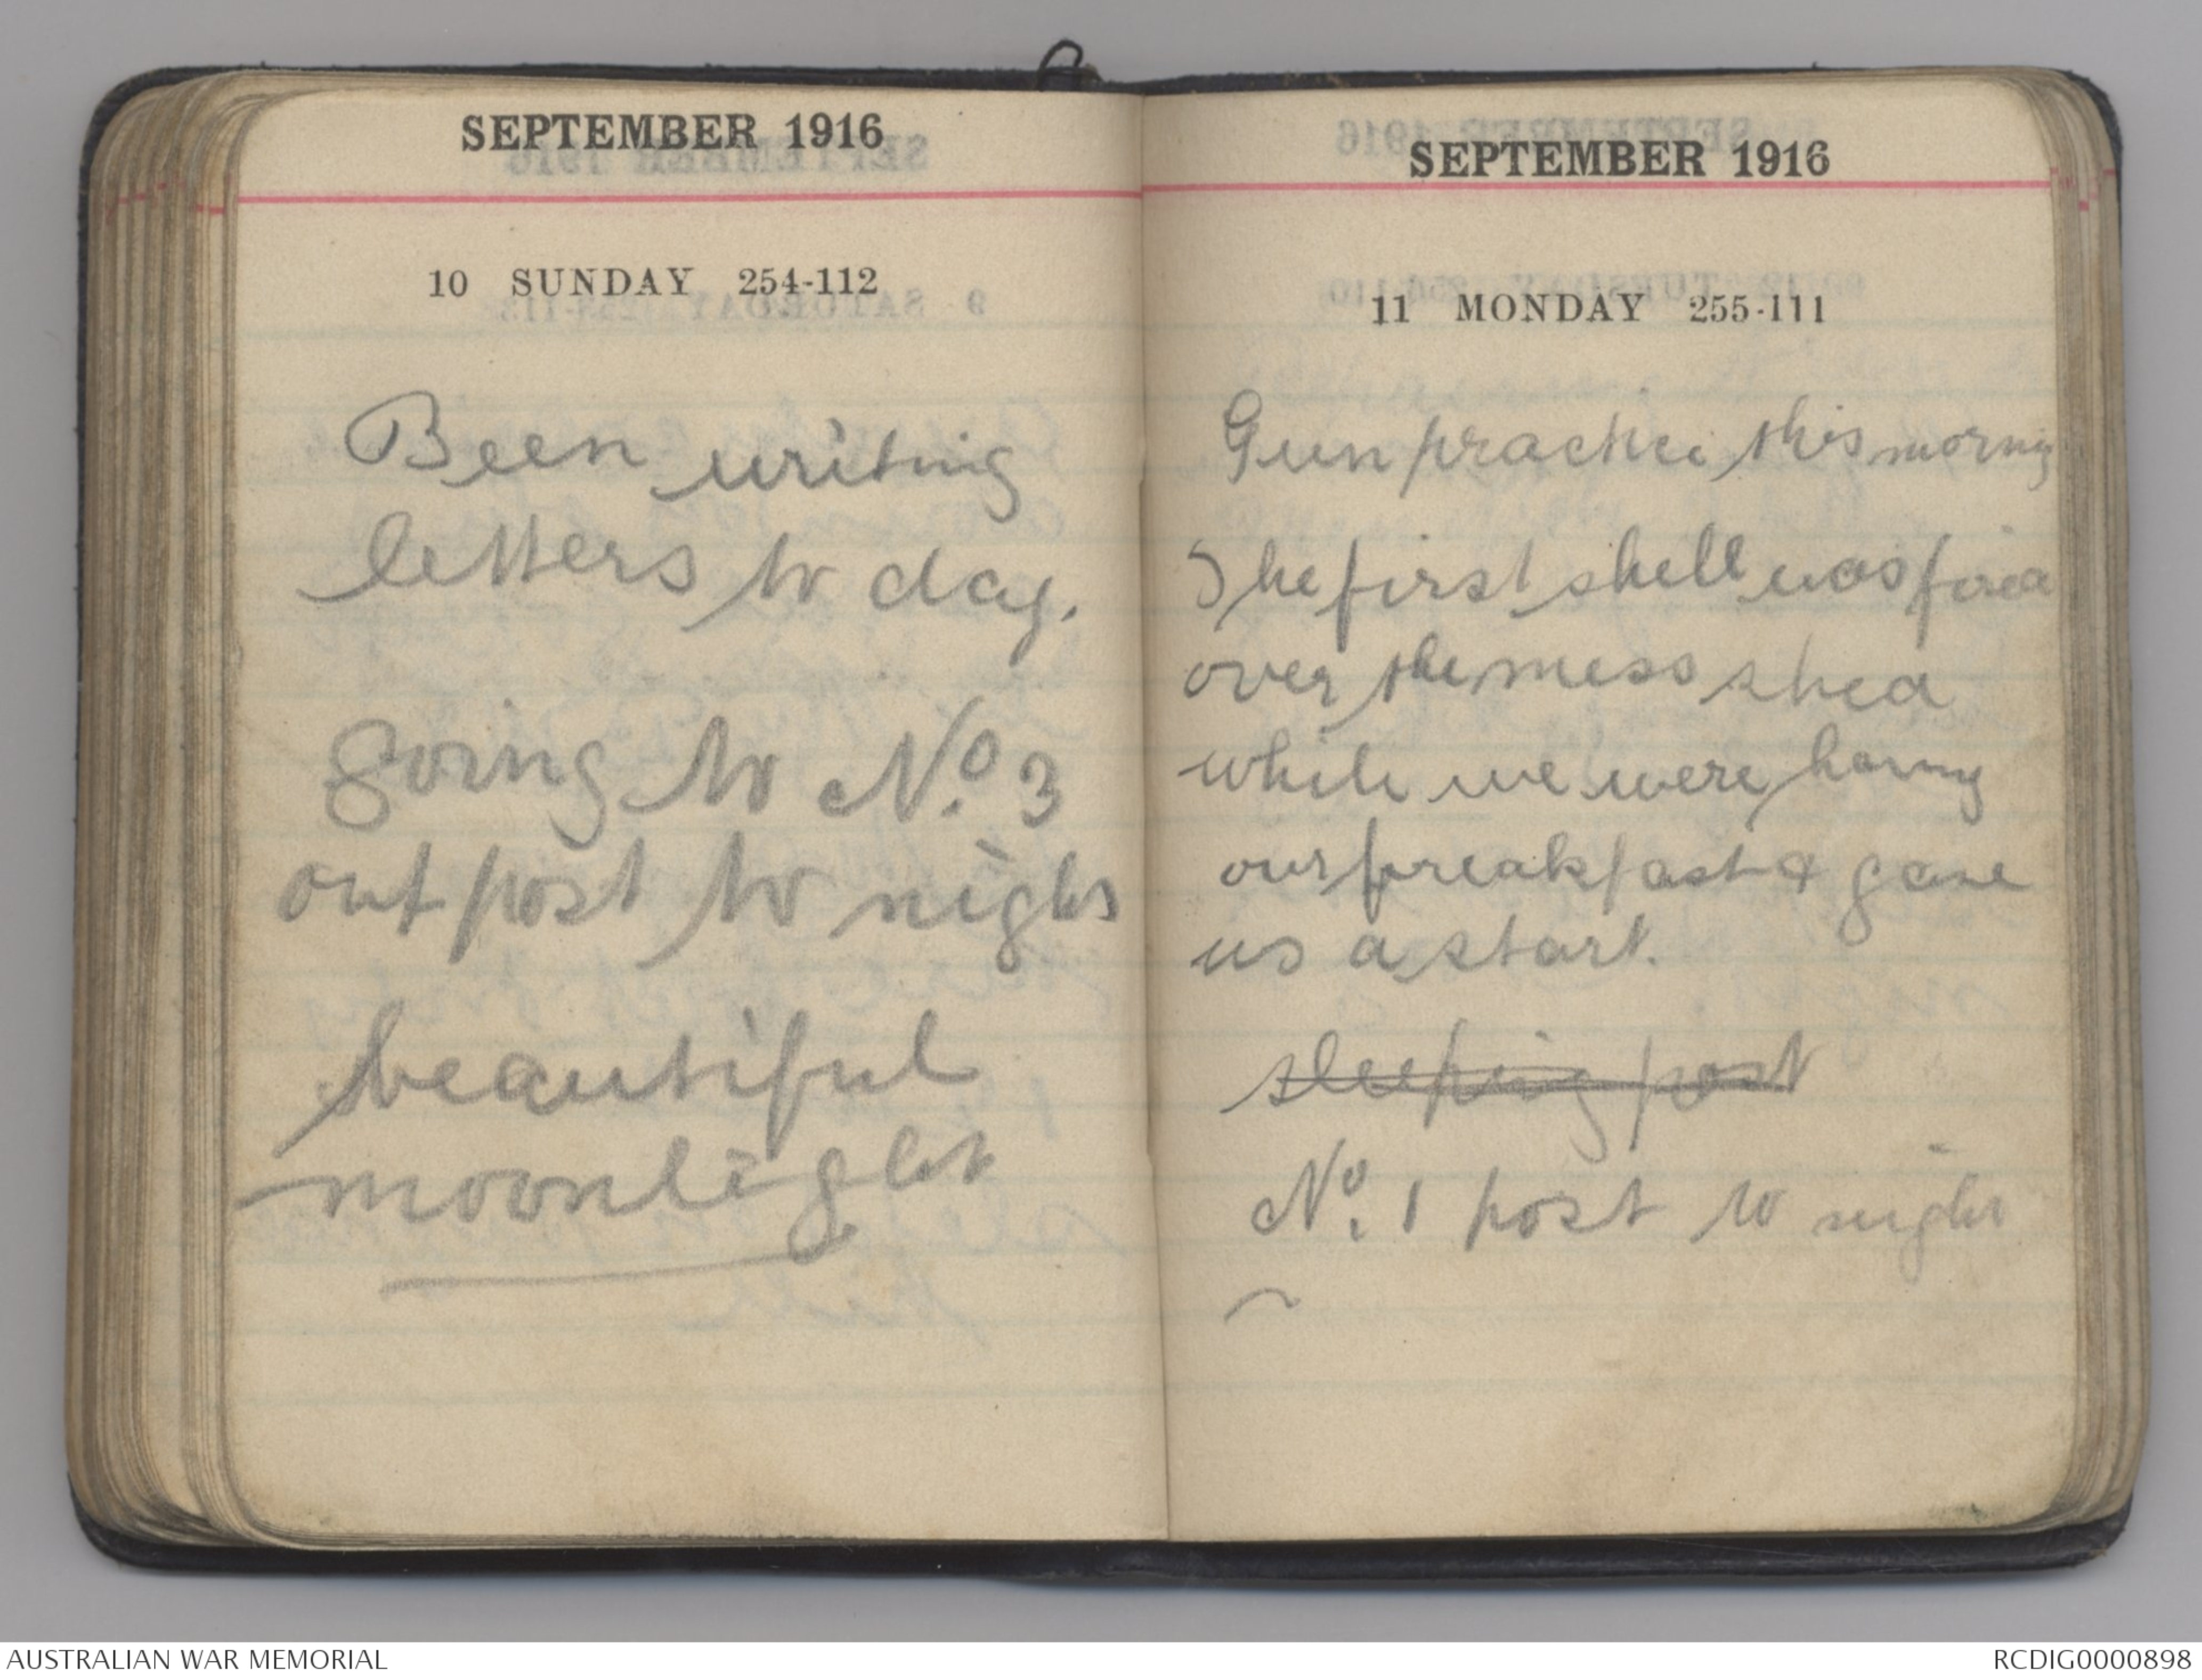 SEPTEMBER 1916
10 SUNDAY 254-112
Been writing
letters to day.
going to No. 3
out post to night
beautiful
moonlight
SEPTEMBER 1916
11 MONDAY 255-111
Gun practice this morning
The first shell was fired
over the mess shed
while we were having
our breakfast & gave
us a start.
sleeping post
No. 1 post to night
AUSTRALIAN WAR MEMORIAL
RCDIG0000898